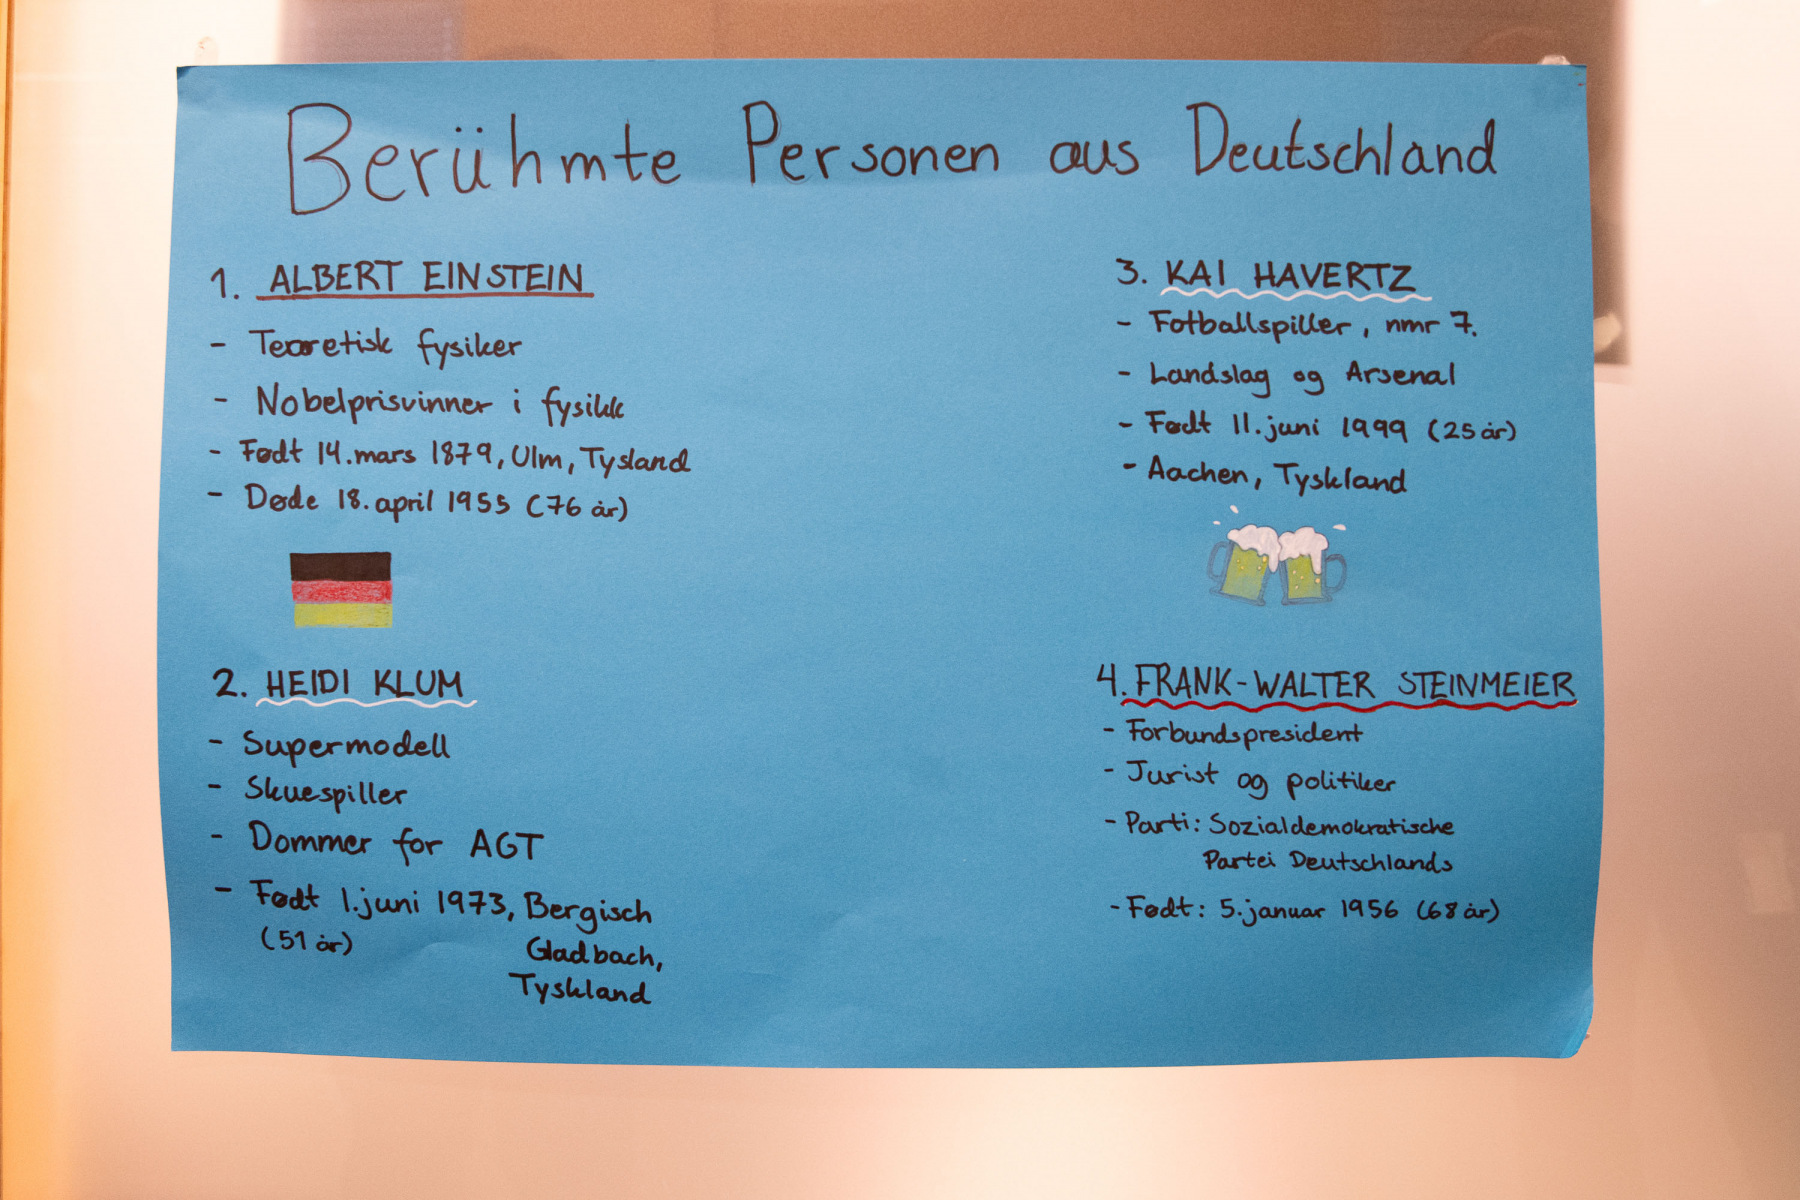 Berühmte Personen aus Deutschland
1. ALBERT EINSTEIN
- Teoretisk fysiker
- Nobelprisvinner i fysikk
- Født 14.mars 1879, Ulm, Tysland
- Døde 18.april 1955 (76 år)
2. HEIDI KLUM
- Supermodell
- Skuespiller
- Dommer for AGT
- Født 1.juni 1973, Bergisch
(51 år) Gladbach,
Tyskland
3. KAI HAVERTZ
- Fotballspiller, nmr 7.
- Landslag og Arsenal
- Født 11.juni 1999 (25 år)
- Aachen, Tyskland
4. FRANK-WALTER STEINMEIER
- Forbundspresident
- Jurist og politiker
- Parti: Sozialdemokratische
Partei Deutschlands
- Født: 5.januar 1956 (68 år)